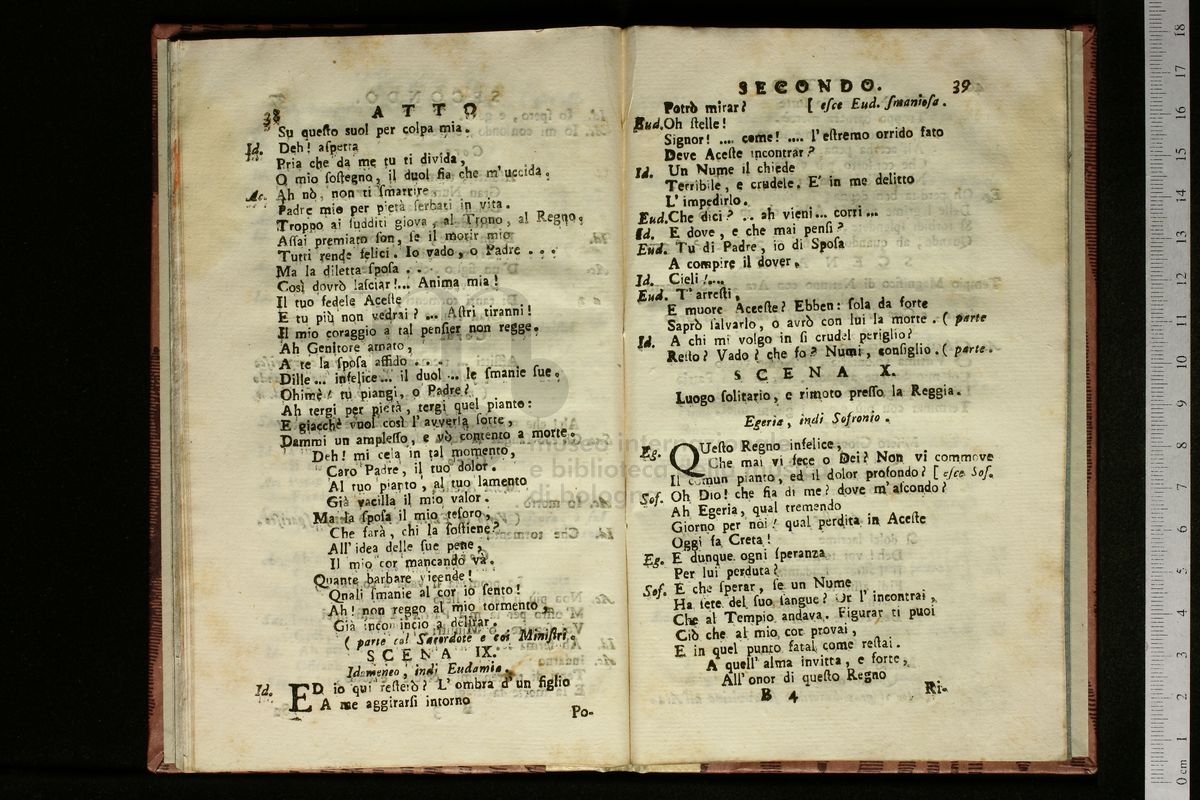 38 ATTO
Su questo suol per colpa mia.
Id. Deh! aspetta
Pria che da me tu ti divida,
O mio sostegno, il duol fia che m'uccida.
Ac. Ah nò, non ti smarrire.
Padre mio per pietà serbati in vita.
Troppo ai sudditi giova, al Trono, al Regno.
Assai premiato son, se il morir mio
Tutti rende felici. Io vado, o Padre . . .
Ma la diletta sposa . . .
Così dovrò lasciar!... Anima mia!
Il tuo fedele Aceste
E tu più non vedrai? ... Astri tiranni!
Il mio coraggio a tal pensier non regge.
Ah Genitore amato,
A te la sposa affido . . . .
Dille... infelice... il duol... le smanie sue.
Ohimè! tu piangi, o Padre?
Ah tergi per pietà, tergi quel pianto:
E giacchè vuol così l'avversa sorte,
Dammi un amplesso, e vò contento a morte.
Deh! mi cela in tal momento,
Caro Padre, il tuo dolor.
Al tuo pianto, al tuo lamento
Già vacilla il mio valor.
Ma la sposa il mio tesoro,
Che sarà, chi la sostiene?
All'idea delle sue pene,
Il mio cor mancando va.
Quante barbare vicende!
Quali smanie al cor io sento!
Ah! non reggo al mio tormento,
Già incomincio a delirar.
( parte col Sacerdote e coi Ministri.
SCENA IX.
Idomeneo, indi Eudamia.
Id. ED io qui resterò? L'ombra d'un figlio
A me aggirarsi intorno
Po-
SECONDO. 39
Potrò mirar? [ esce Eud. smaniosa.
Eud. Oh stelle!
Signor! .... come! .... l'estremo orrido fato
Deve Aceste incontrar?
Id. Un Nume il chiede
Terribile, e crudele. E' in me delitto
L'impedirlo.
Eud. Che dici? .. ah vieni... corri...
Id. E dove, e che mai pensi?
Eud. Tu di Padre, io di Sposa
A compire il dover.
Id. Cieli!....
Eud. T'arresti,
E muore Aceeste? Ebben: sola da forte
Saprò salvarlo, o avrò con lui la morte. ( parte
Id. A chi mi volgo in sì crudel periglio?
Resto? Vado? che fo? Numi, consiglio. ( parte.
SCENA X.
Luogo solitario, e rimoto presso la Reggia.
Egeria, indi Sofronio.
Eg. QUesto Regno infelice,
Che mai vi fece o Dei? Non vi commove
Il comun pianto, ed il dolor profondo? [ esce Sof.
Sof. Oh Dio! che fia di me? dove m'ascondo?
Ah Egeria, qual tremendo
Giorno per noi! qual perdita in Aceste
Oggi fa Creta!
Eg. E dunque ogni speranza
Per lui perduta?
Sof. E che sperar, se un Nume
Ha sete del suo sangue? Or l'incontrai,
Che al Tempio andava. Figurar ti puoi
Ciò che al mio cor provai,
E in quel punto fatal come restai.
A quell'alma invitta, e forte,
All'onor di questo Regno
B 4
Ri-
museo internazionale
e biblioteca della musica
di bologna